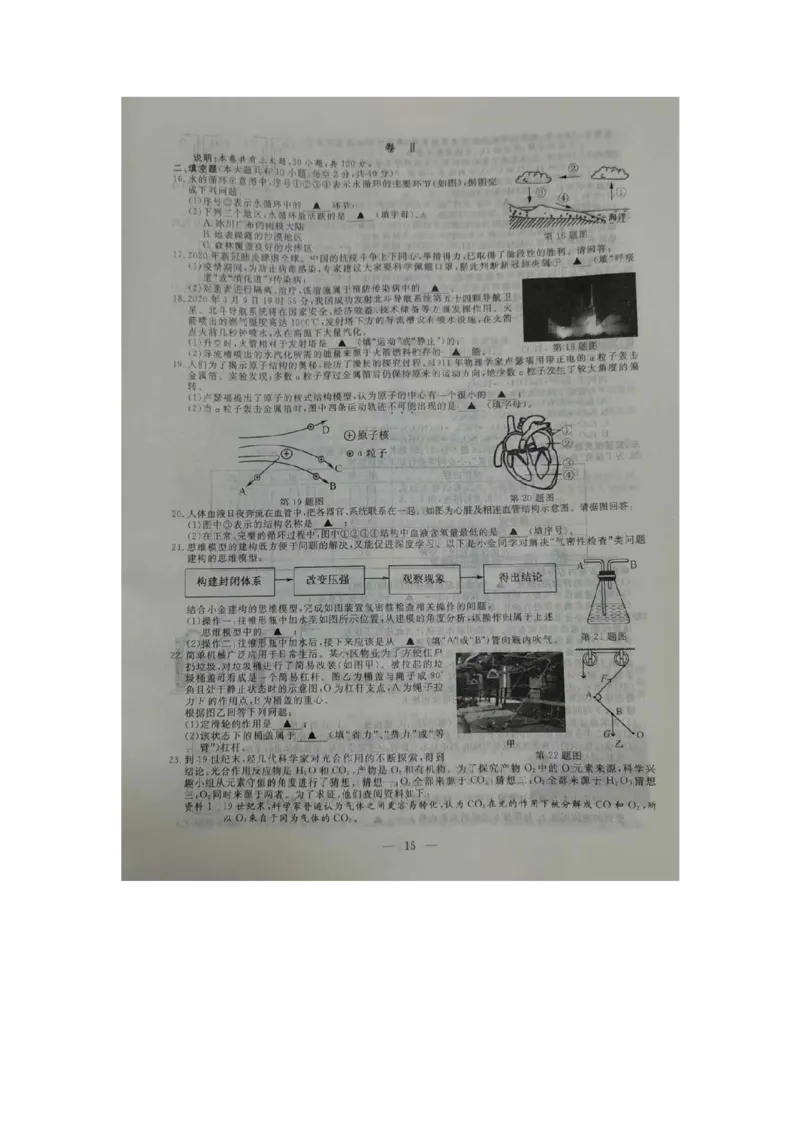 卷 Ⅱ
说明:本卷共有三大题,20小题,共120分。
二、填空题(本大题共有10小题;每空2分,共40分)
16.水的循环示意图中,序号①②③④表示水循环的主要环节(如图),据图完
成下列问题:
(1)序号②表示水循环中的 ▲ 环节;
(2)下列三个地区,水循环最活跃的是 ▲ (填字母)。
A.冰川广布的南极大陆
B.地表裸露的沙漠地区
C.森林覆盖良好的水库区
②
③
④
①
海洋
第16题图
17.2020年新冠肺炎肆虐全球。中国的抗疫斗争上下同心,举措得力,已取得了阶段性的胜利。请回答:
(1)疫情期间,为防止病毒感染,专家建议大家要科学佩戴口罩,据此判断新冠肺炎属于 ▲ (填“呼吸
道”或“消化道”)传染病;
(2)对患者进行隔离、治疗,该措施属于预防传染病中的 ▲ 。
18.2020年3月9日19时55分,我国成功发射北斗导航系统第五十四颗导航卫
星。北斗导航系统将在国家安全、经济效益、技术储备等方面发挥作用。火
箭喷出的燃气温度高达
℃,发射塔下方的导流槽设有喷水设施,在火箭
点火前几秒钟喷水,水在高温下大量汽化。
(1)升空时,火箭相对于发射塔是 ▲ (填“运动”或“静止”)的;
(2)导流槽喷出的水汽化所需的能量来源于火箭燃料贮存的 ▲ 能。
第18题图
19.人们为了揭示原子结构的奥秘,经历了漫长的探究过程。1911年物理学家卢瑟福用带正电的α粒子轰击
金属箔。实验发现:多数α粒子穿过金属箔后仍保持原来的运动方向,绝少数α粒子发生了较大角度的偏
转。
(1)卢瑟福提出了原子的核式结构模型,认为原子的中心有一个很小的 ▲ ;
(2)当α粒子轰击金属箔时,图中四条运动轨迹不可能出现的是 ▲ (填字母)。
D
C
B
A
原子核
α粒子
第19题图
①
②
③
④
第20题图
20.人体血液日夜奔流在血管中,把各器官、系统联系在一起。如图为心脏及相连血管结构示意图。请据图回答:
(1)图中③表示的结构名称是 ▲ ;
(2)在正常、完整的循环过程中,图中①②③④结构中血液含氧量最低的是 ▲ (填序号)。
21.思维模型的建构既方便于问题的解决,又能促进深度学习。以下是小金同学对解决“气密性检查”类问题
建构的思维模型:
构建封闭体系
改变压强
观察现象
得出结论
结合小金建构的思维模型,完成如图装置气密性检查相关操作的问题:
(1)操作一:往锥形瓶中加水至如图所示位置,从建模的角度分析,该操作归属于上述
思维模型中的 ▲ ;
(2)操作二:往锥形瓶中加水后,接下来应该是从 ▲ (填“A”或“B”)管向瓶内吹气。
A
B
第21题图
22.简单机械广泛应用于日常生活。某小区物业为了方便住户
扔垃圾,对垃圾桶进行了简易改装(如图甲)。被拉起的垃
圾桶盖可看成是一个简易杠杆。图乙为桶盖与绳子成90°
角且处于静止状态时的示意图,O为杠杆支点,A为绳子拉
力F的作用点,B为桶盖的重心。
根据图乙回答下列问题:
(1)定滑轮的作用是 ▲ ;
(2)该状态下的桶盖属于 ▲ (填“省力”、“费力”或“等
臂”)杠杆。
甲
F
A
B
G
O
乙
第22题图
23.到19世纪末,经几代科学家对光合作用的不断探索,得到
结论:光合作用反应物是H₂O和CO₂,产物是O₂和有机物。为了探究产物O₂中的O元素来源,科学兴
趣小组从元素守恒的角度进行了猜想。猜想一:O₂全部来源于CO₂;猜想二:O₂全部来源于H₂O;猜想
三:O₂同时来源于两者。为了求证,他们查阅资料如下:
资料1 19世纪末,科学家普遍认为气体之间更容易转化,认为CO₂在光的作用下被分解成CO和O₂,所
以O₂来自于同为气体的CO₂。
— 15 —